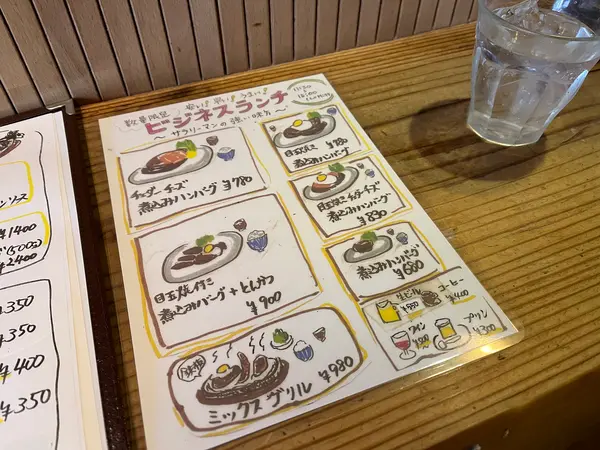 数量限定 安い!早い!うまい!
ビジネスランチ
〜サラリーマンの強い味方〜
チェダーチーズ
煮込みハンバーグ ¥780
目玉焼き付き
煮込みハンバーグ+とんかつ
¥900
ミックスグリル ¥980
目玉焼き ¥780
煮込みハンバーグ
目玉焼き チェダーチーズ
煮込みハンバーグ
¥830
煮込みハンバーグ
¥680
生ビール
コーヒー
¥400
ワイン
プリン
¥300
ソース
¥1400
(500g)
¥2400
¥350
¥350
¥400
¥350